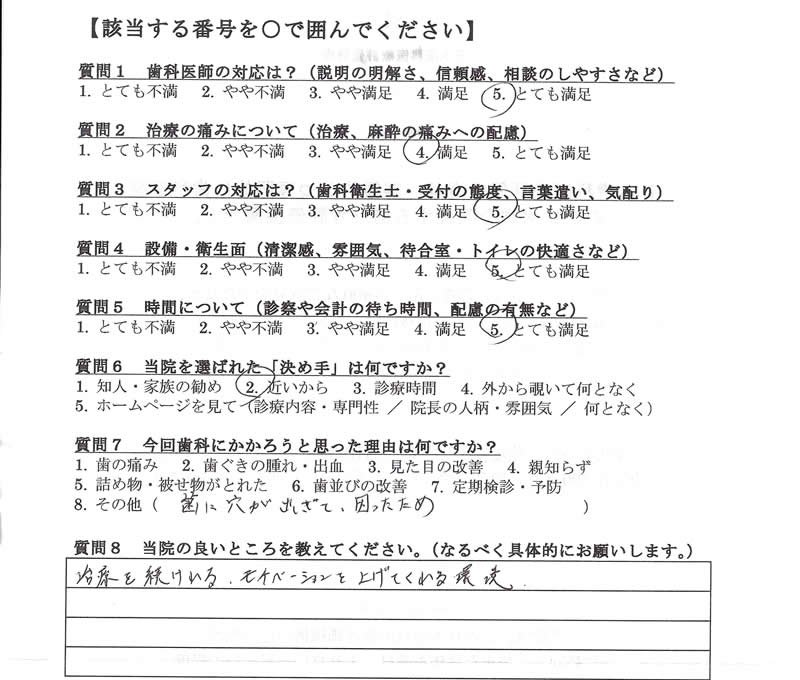 【該当する番号を〇で囲んでください】
質問１　歯科医師の対応は？（説明の明解さ、信頼感、相談のしやすさなど）
1. とても不満　2. やや不満　3. やや満足　4. 満足　5. とても満足
質問２　治療の痛みについて（治療、麻酔の痛みへの配慮）
1. とても不満　2. やや不満　3. やや満足　4. 満足　5. とても満足
質問３　スタッフの対応は？（歯科衛生士・受付の態度、言葉遣い、気配り）
1. とても不満　2. やや不満　3. やや満足　4. 満足　5. とても満足
質問４　設備・衛生面（清潔感、雰囲気、待合室・トイレの快適さなど）
1. とても不満　2. やや不満　3. やや満足　4. 満足　5. とても満足
質問５　時間について（診察や会計の待ち時間、配慮の有無など）
1. とても不満　2. やや不満　3. やや満足　4. 満足　5. とても満足
質問６　当院を選ばれた「決め手」は何ですか？
1. 知人・家族の勧め　2. 近いから　3. 診療時間　4. 外から覗いて何となく
5. ホームページを見て（診療内容・専門性 ／ 院長の人柄・雰囲気 ／ 何となく）
質問７　今回歯科にかかろうと思った理由は何ですか？
1. 歯の痛み　2. 歯ぐきの腫れ・出血　3. 見た目の改善　4. 親知らず
5. 詰め物・被せ物がとれた　6. 歯並びの改善　7. 定期検診・予防
8. その他（ 歯に穴が すぎて、困ったため ）
質問８　当院の良いところを教えてください。（なるべく具体的にお願いします。）
治療を続けれる、モチベーションを上げてくれる環境.